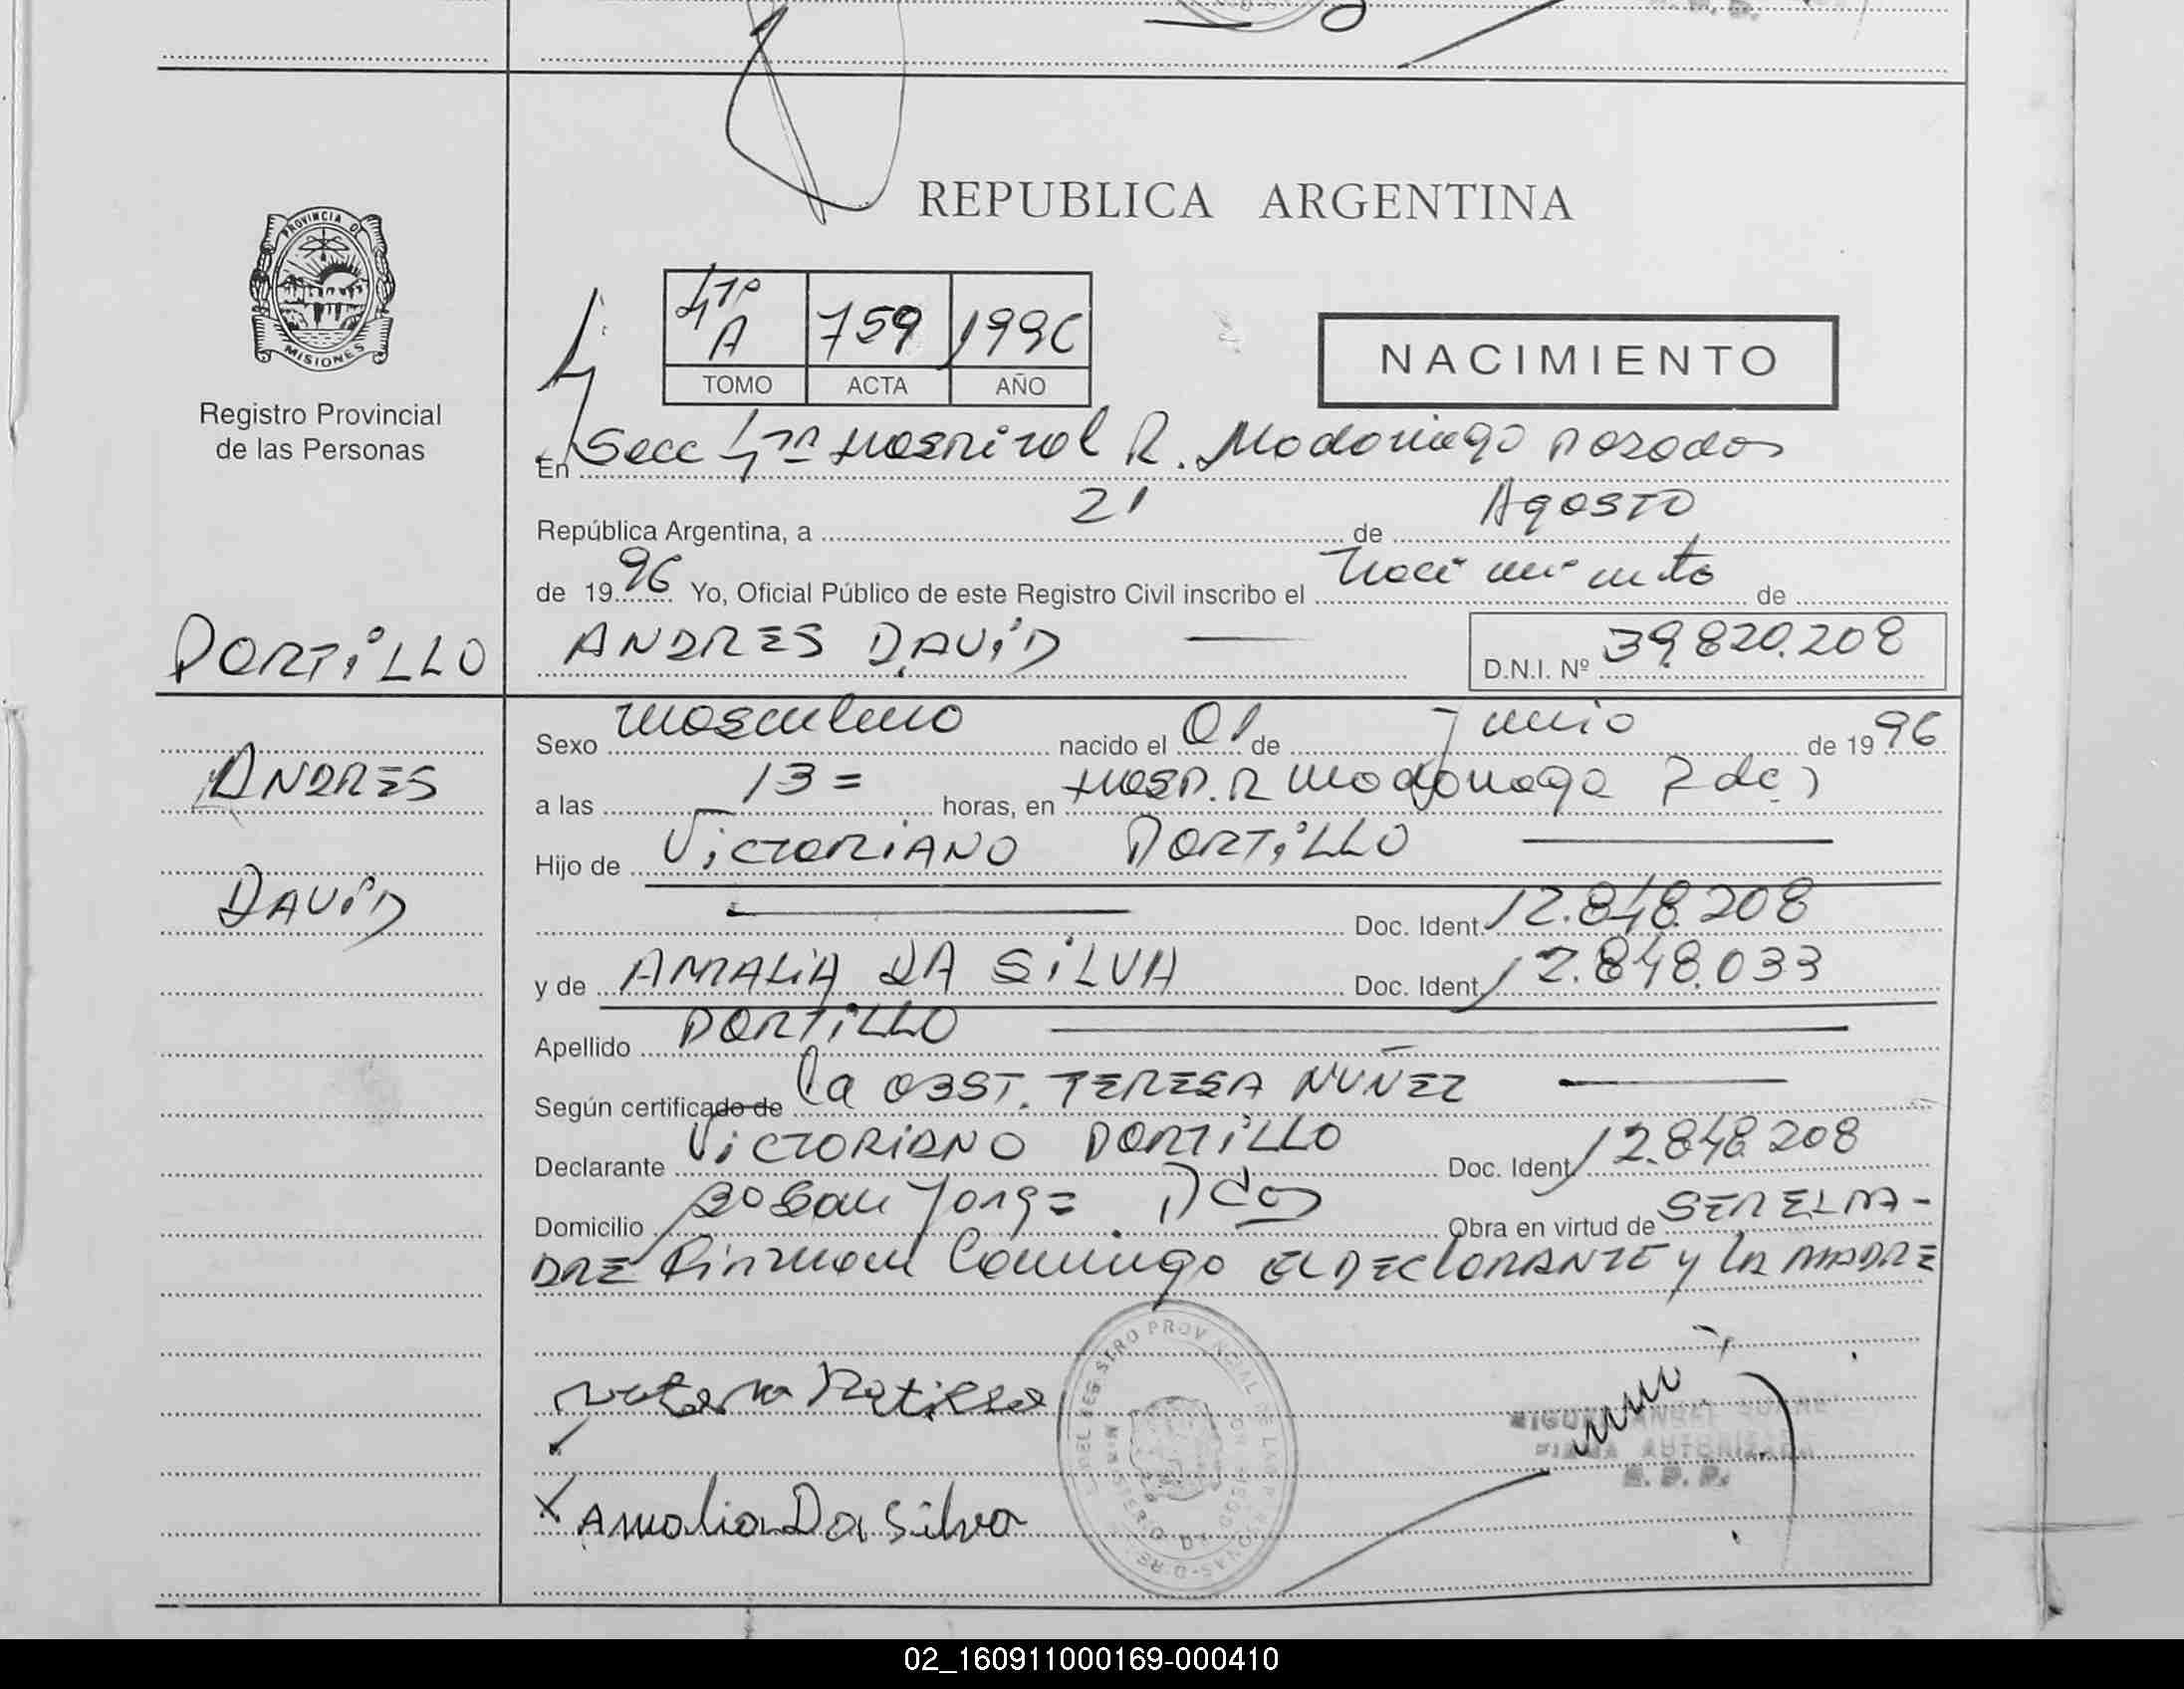 REPUBLICA ARGENTINA
PROVINCIA DE
MISIONES
Registro Provincial
de las Personas
4ta A 759 1996
TOMO ACTA AÑO
NACIMIENTO
En Secc 4ta Hospital R. Madariaga Posadas
República Argentina, a 21 de Agosto
de 1996 Yo, Oficial Público de este Registro Civil inscribo el Nacimiento de
PORTILLO
ANDRES DAVID
D.N.I. Nº 39.820.208
Sexo masculino nacido el 01 de junio de 1996
ANDRES
a las 13 = horas, en Hosp. R Madariaga Pdas
Hijo de VICTORIANO PORTILLO
DAVID
Doc. Ident 12.848.208
y de AMALIA DA SILVA Doc. Ident 12.848.033
Apellido PORTILLO
Según certificado de la OBST. TERESA NUÑEZ
Declarante VICTORIANO PORTILLO Doc. Ident 12.848.208
Domicilio Bº San Jorge Pdas Obra en virtud de SER EL PA-
DRE Firman Conmigo EL DECLARANTE y LA MADRE
Amalia Da Silva
MIGUEL ANGEL
FIRMA AUTORIZADA
R. P. P.
02_160911000169-000410